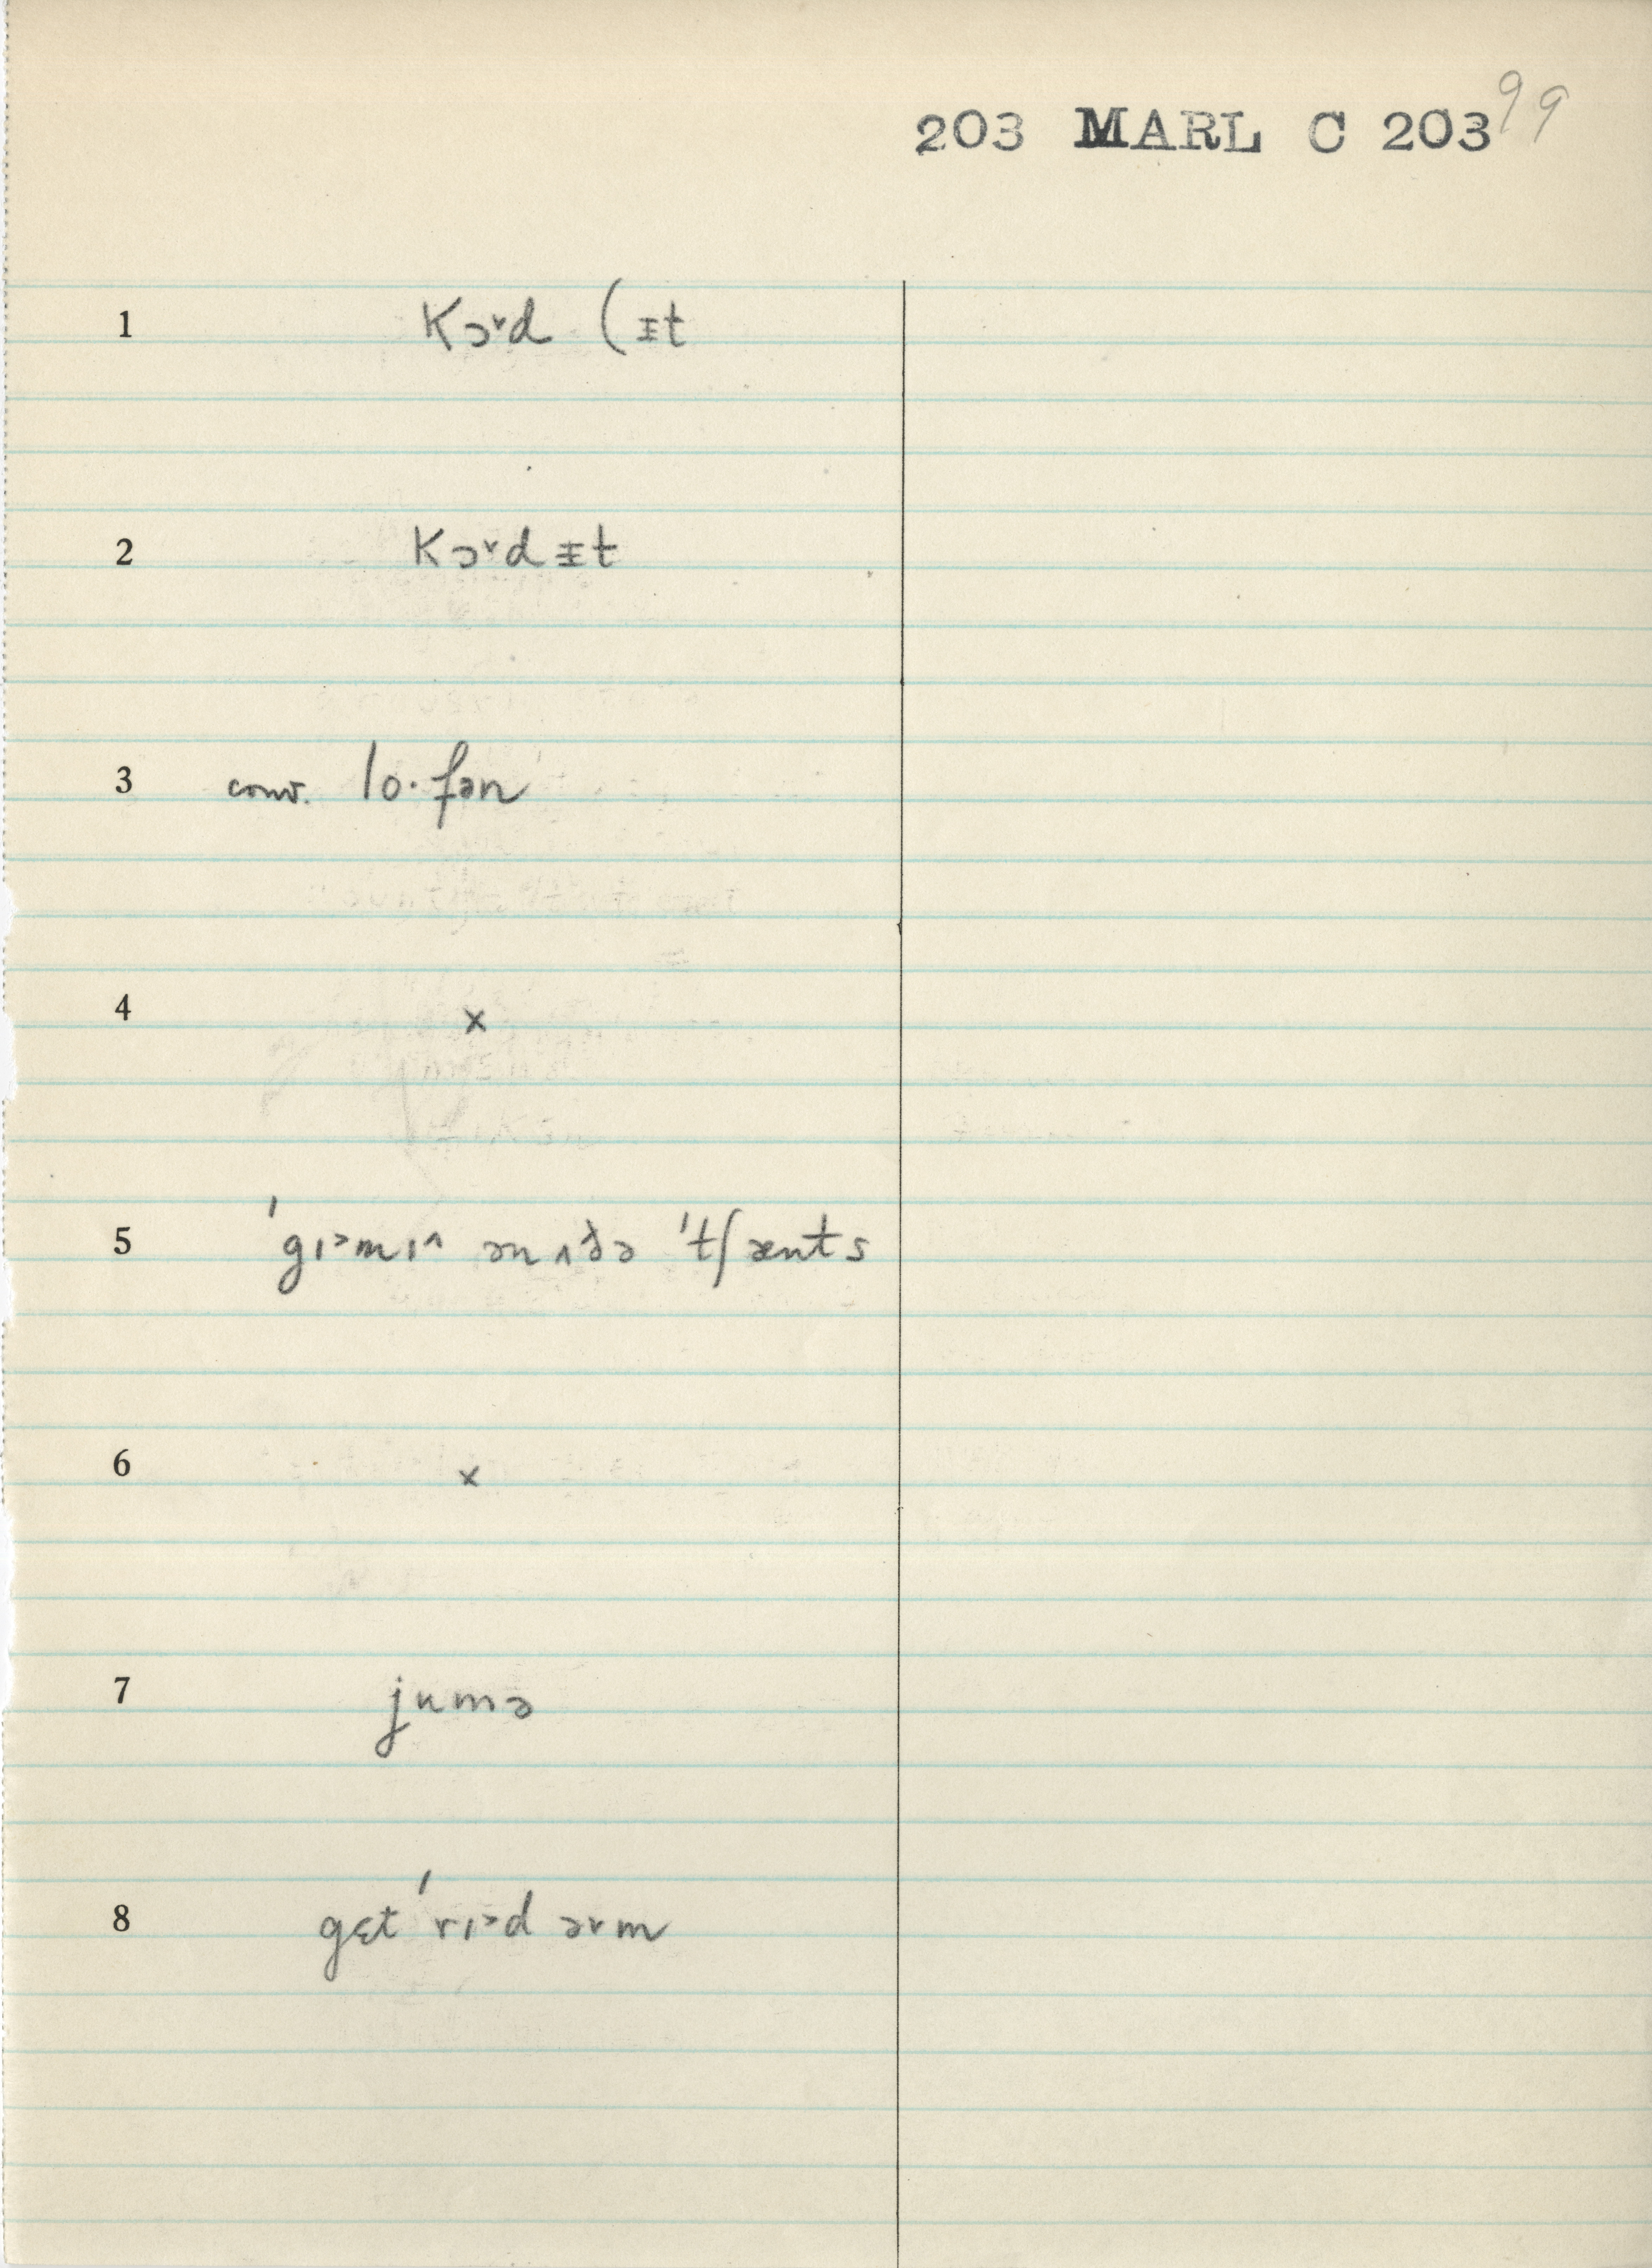 203 MARL C 203 99
1 Kɔ˅d (ɪ̵t
2 Kɔ˅dɪ̵t
3 conv. lo·fən
4 x
5 ˈgɪ˃mɪ^ ənʌðə ˈtʃænts
6 x
7 jumə
8 gɛt ˈrɪ˃d ə˅m